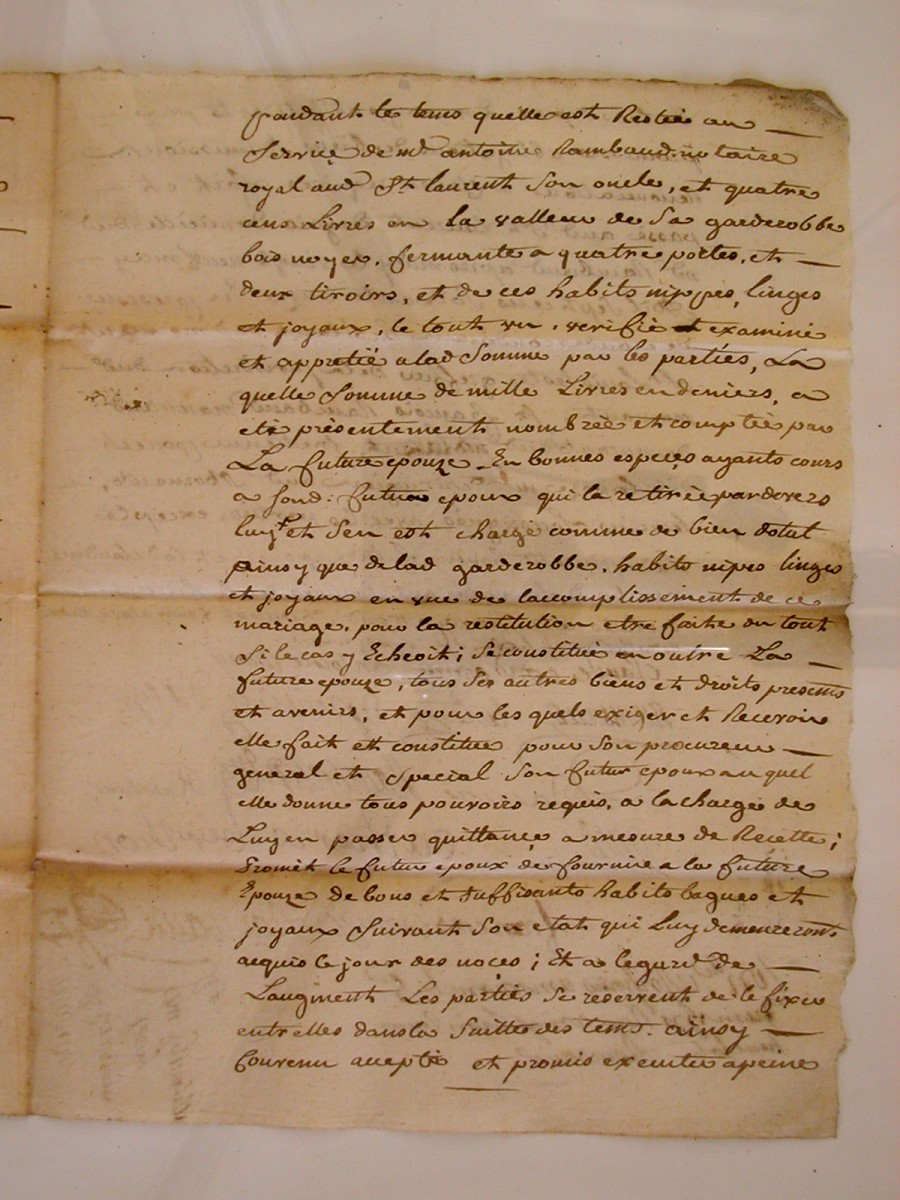 pandant le tems quelle est Restée au
Service de mr antoine Rambaud notaire
royal aud St laurent Son oncle, et quatre
cens Livres en la valleur de Sa garderobbe
bois noyer, fermante a quatre portes, et
deux tiroirs, et de ces habits nippes, linges
et joyaux, le tout vu, verifié et examiné
et appretié a lad Somme par les parties, La
quelle Somme de mille Livres en deniers, a
eté présentement nombrée et comptée par
La future epouze En bonnes espeçes ayants cours
a sond: futur epoux qui la retirée pardevers
luy et Sen est chargé comme de bien dotal
ainsy que de lad garderobbe, habits nipes linges
et joyaux en vue de laccomplissement de ce
mariage, pour la restitution etre faite du tout
Si le cas y Echeoit; Se constitue en outre La
future epouze, tous Ses autres biens et droits presents
et avenirs, et pour les quels exiger et Recevoir
elle fait et constitue pour Son procureur
general et Special Son futur epoux au quel
elle donne tous pouvoirs requis, a la charge de
Luy en passer quittançe a mesure de Reçette;
Promet le futur epoux de fournir a la future
Epouze de bons et Suffisants habits bagues et
joyaux Suivant Son etat qui Luy demeureront
acquis le jour des noces; Et a legard de
Laugment Les parties Se réservent de le fixer
entrelles dans la Suitte des tems. aïnsy
Convenu accepté et promis executer a peine